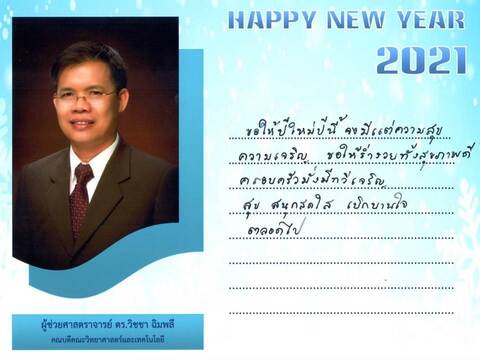 HAPPY NEW YEAR
2021
ขอให้ปีใหม่ปีนี้ จงมีแต่ความสุข
ความเจริญ ขอให้ร่ำรวยทั้งสุขภาพดี
ครอบครัวมั่งมีทวีเจริญ
สุข สนุกสดใส เบิกบานใจ
ตลอดไป
ผู้ช่วยศาสตราจารย์ ดร.วิชชา ฉิมพลี
คณบดีคณะวิทยาศาสตร์และเทคโนโลยี